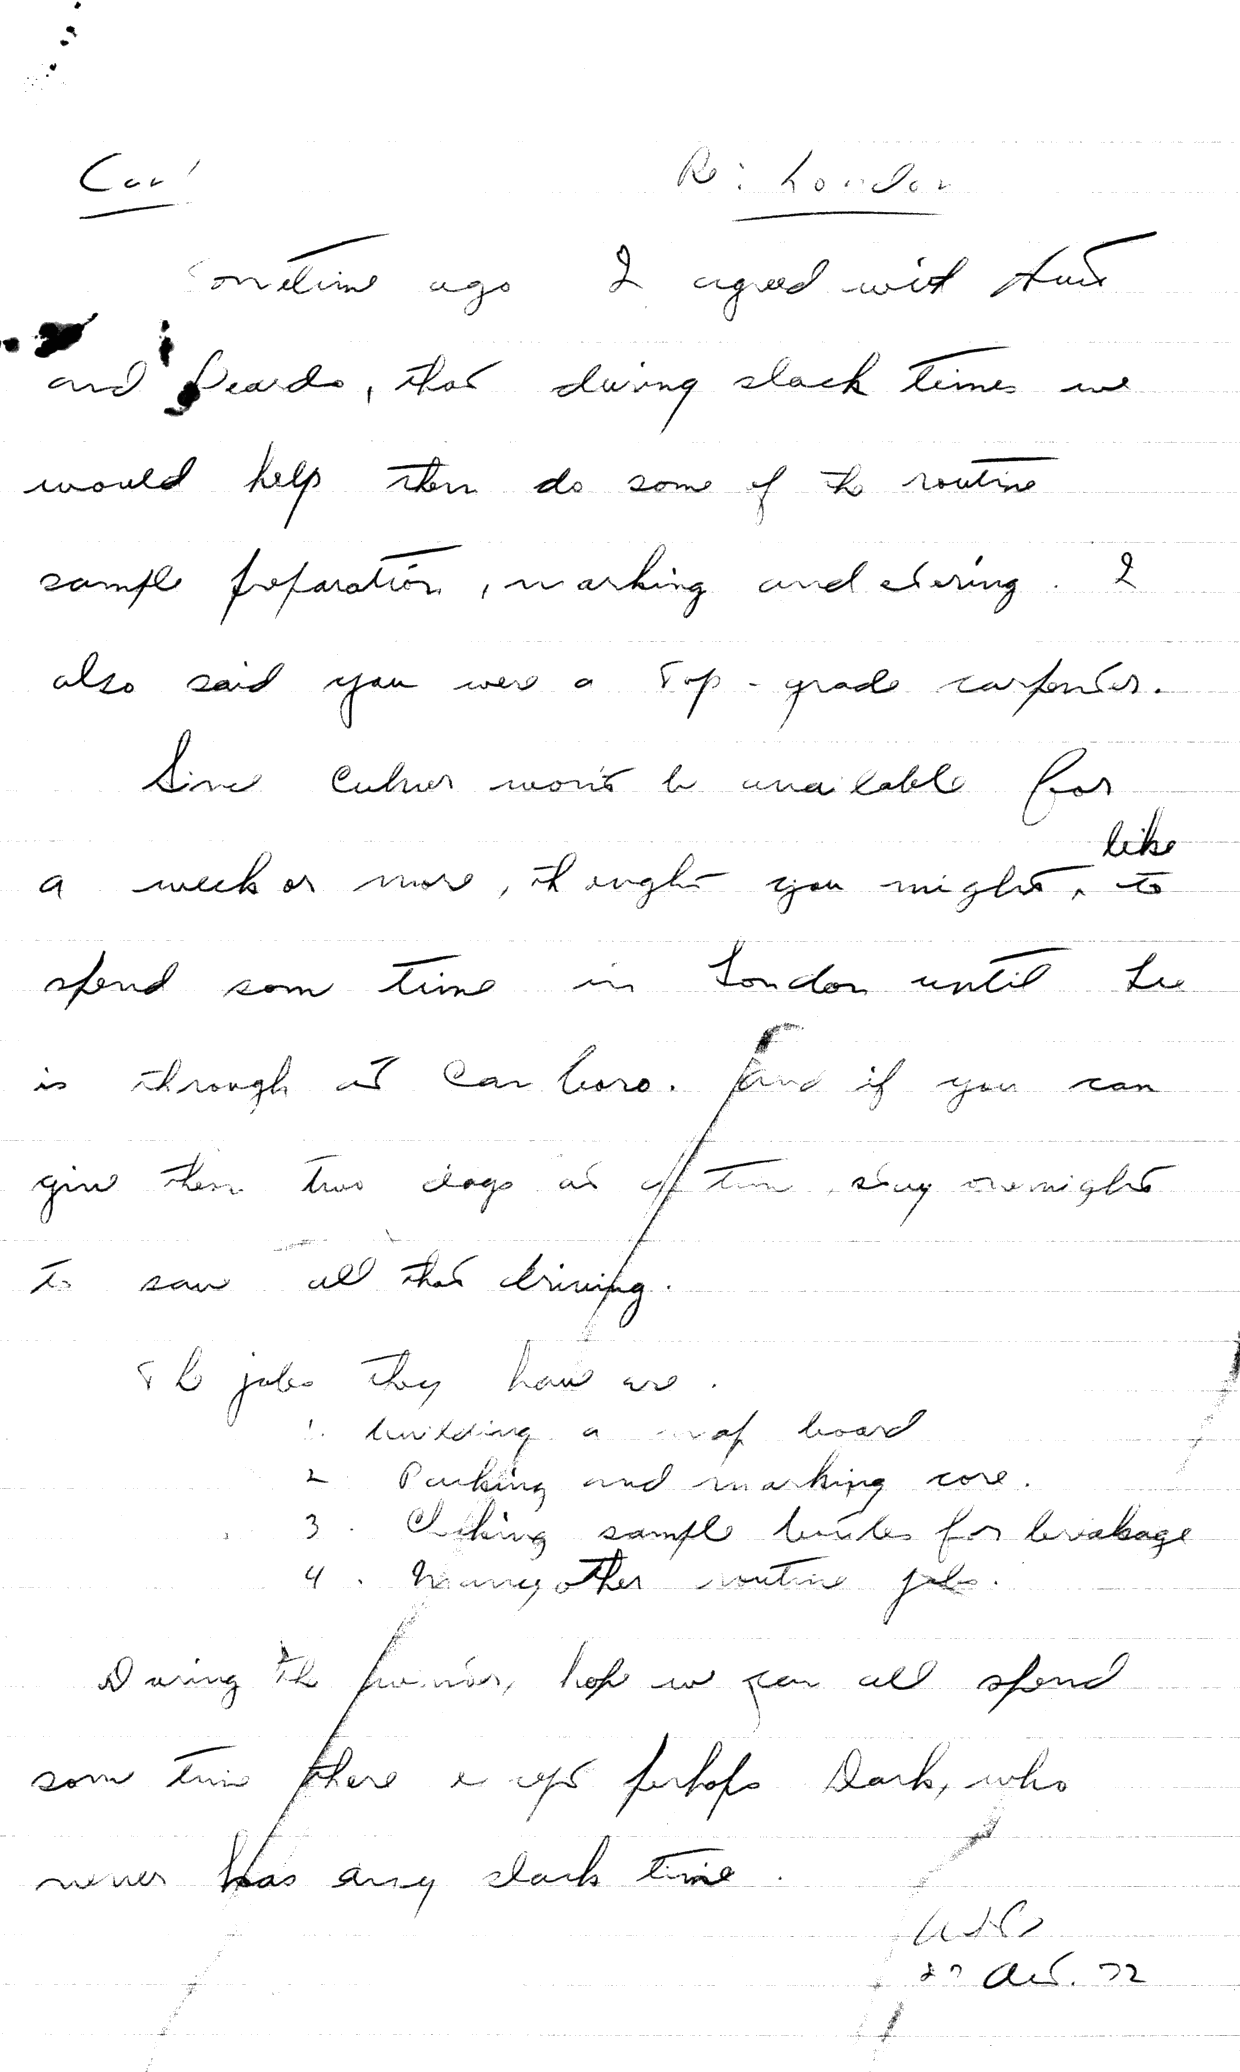 Carl Re: London
Sometime ago I agreed with
and Beards, that during slack times we
would help them do some of the routine
sample preparation, marking and storing. I
also said you were a top-grade carpenter.
Since Culver won't be available for
like
a week or more, thought you might, to
spend some time in London until Lee
is through at Carlboro. And if you can
give them two days at a time, stay overnight
to save all that driving.
The jobs they have are.
1. building a map board
2 Packing and marking core.
3. Checking sample bottles for breakage
4. Many other routine jobs.
During the winter, hope we can all spend
some time there except perhaps Dark, who
never has any slack time.
Oct. 72